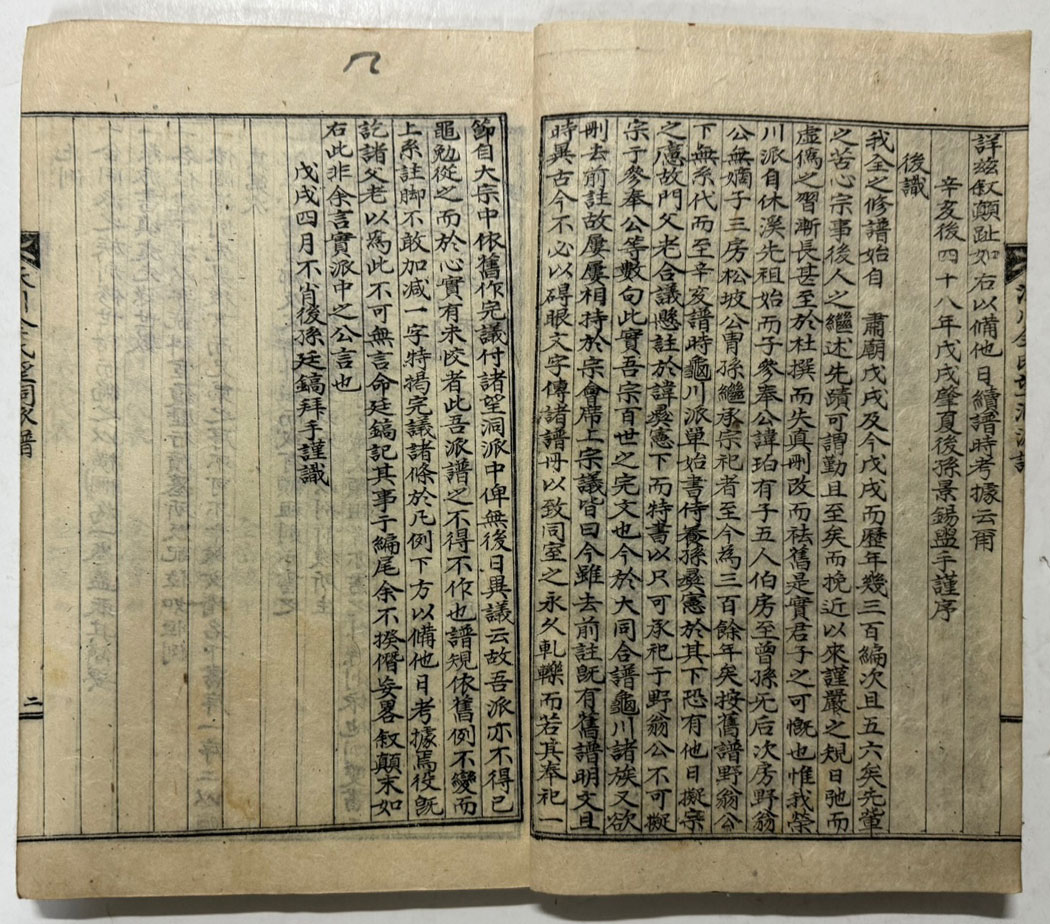 詳玆叙顛趾如右以備他日續譜時考據云爾
辛亥後四十八年戊戌肇夏後孫景錫盥手謹序
後識
我全之修譜始自 肅廟戊戌及今戊戌而歷年幾三百編次且五六矣先輩
之苦心宗事後人之繼述先蹟可謂勤且至矣而挽近以來謹嚴之規日弛而
虛僞之習漸長甚至於杜撰而失眞刪改而祛舊是實君子之可慨也惟我榮
川派自休溪先祖始而子參奉公諱珀有子五人伯房至曾孫无后次房野翁
公無嫡子三房松坡公胄孫繼承宗祀者至今爲三百餘年矣按舊譜野翁公
下無系代而至辛亥譜時龜川派單始書侍養孫彝憲於其下恐有他日擬宗
之慮故門父老合議懸註於諱彝憲下而特書以只可承祀于野翁公不可擬
宗于參奉公等數句此實吾宗百世之完文也今於大同合譜龜川諸族又欲
刪去前註故屢屢相持於宗會席上宗議皆曰今雖去前註旣有舊譜明文且
時異古今不必以碍眼文字傳諸譜冊以致同室之永久軋轢而若其奉祀一
節自大宗中依舊作完議付諸望洞派中俾無後日異議云故吾派亦不得已
黽勉從之而於心實有未恔者此吾派譜之不得不作也譜規依舊例不變而
上系註脚不敢加减一字特揭完議諸條於凡例下方以備他日考據焉役旣
訖諸父老以爲此不可無言命廷鎬記其事于編尾余不揆僭妄畧叙顛末如
右此非余言實派中之公言也
戊戌四月不肖後孫廷鎬拜手謹識
二